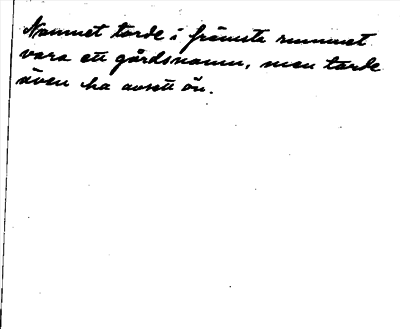 Namnet torde i främsta rummet
vara ett gårdsnamn, men torde
även ha avsett ön.